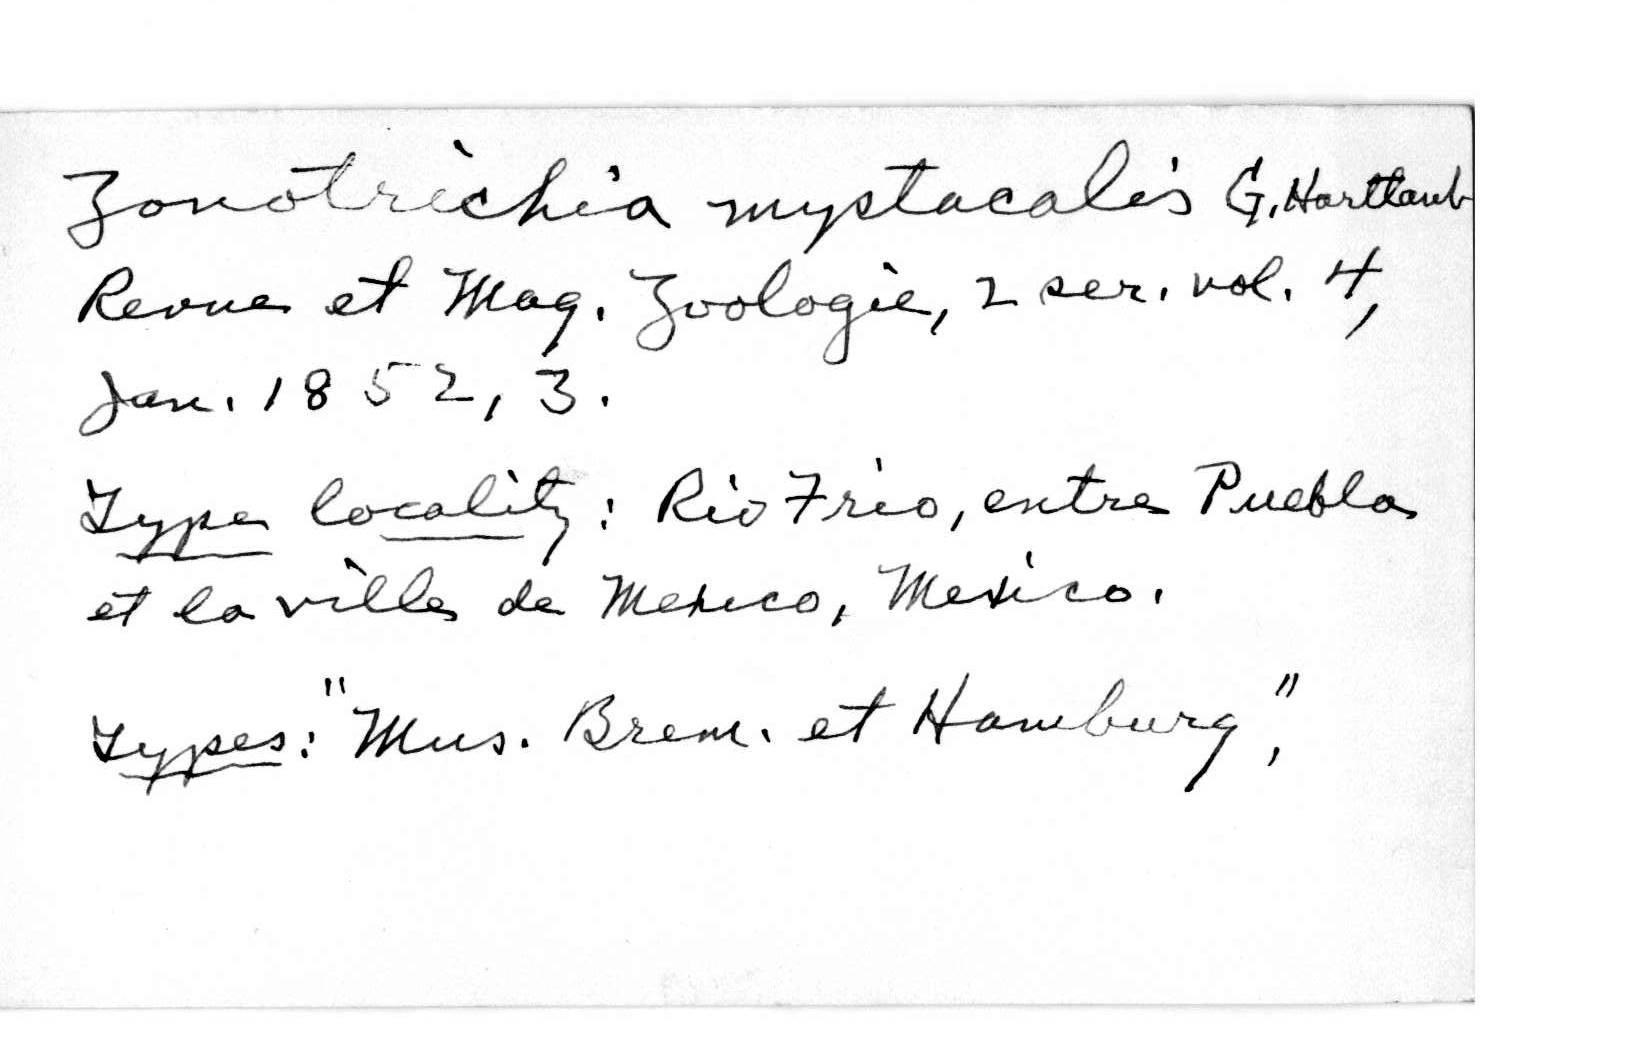 Zonotrichia mystacalis G. Hartlaub
Revue et Mag. Zoologie, 2 ser. vol. 4,
Jan. 1852, 3.
Type locality: Rio Frio, entre Puebla
et la ville de Mexico, Mexico.
Types: "Mus. Brem. et Hamburg",